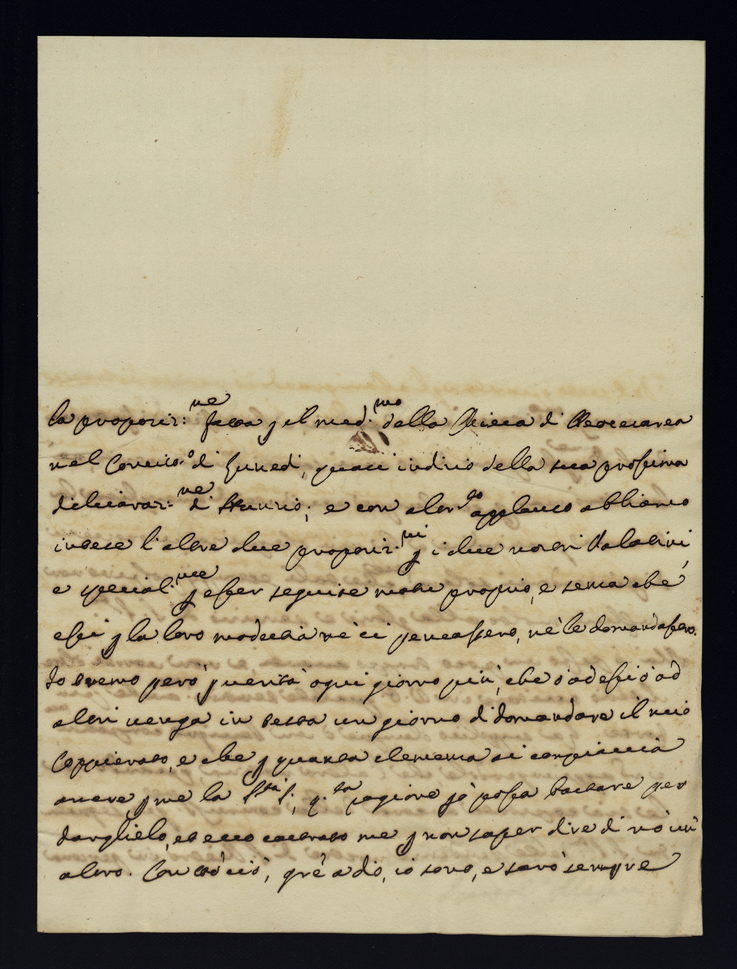 la proposiz:ne fatta p il med.mo della Chiesa di
nel Concist.o di Lunedi, quasi indizio della sua prossima
dichiaraz:ne di Nunzio; e con altr.to applauso abbiamo
intese l'altre due proposiz:ni p i due nostri Palatini,
e special.nte p esser seguite motu proprio, e senza che
essi p la loro modestia nè ci pensassero, nè le domandassero.
Io tremo però p verità ogni giorno più, che ò ad essi ò ad
altri venga in testa un giorno di domandare il mio
Coppierato, e che p quanta clemenza si compiaccia
avere p me la Sta S., q.sta ragione gò possa bastare per
darglielo, et ecco cascato me p non saper dire di nò un
altro. Con tò ciò, grē a dio, io sono, e sarò sempre